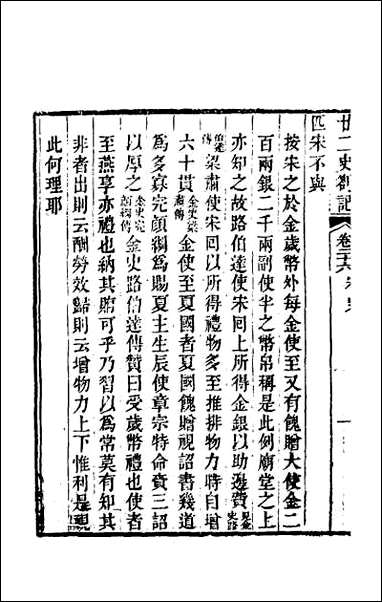 廿二史劄記 卷二十六 宋史 一
匹宋不與
按宋之於金歲幣外每金使至又有餽贈大使金二
百兩銀二千兩副使半之幣帛稱是此例廟堂之上
亦知之故路伯達使宋回上所得金銀以助邊費見金史路
伯達傳梁肅使宋回以所得禮物多至推排物力時自增
六十貫金史梁肅傳金使至夏國者夏國餽贈視詔書幾道
為多寡完顏綱為賜夏主生辰使章宗特命賫三詔
以厚之金史完顏綱傳金史路伯達傳贊曰受歲幣禮也使者
至燕享亦禮也納其賂可乎乃習以為常莫有知其
非者出則云酬勞效歸則云增物力上下惟利是視
此何理耶